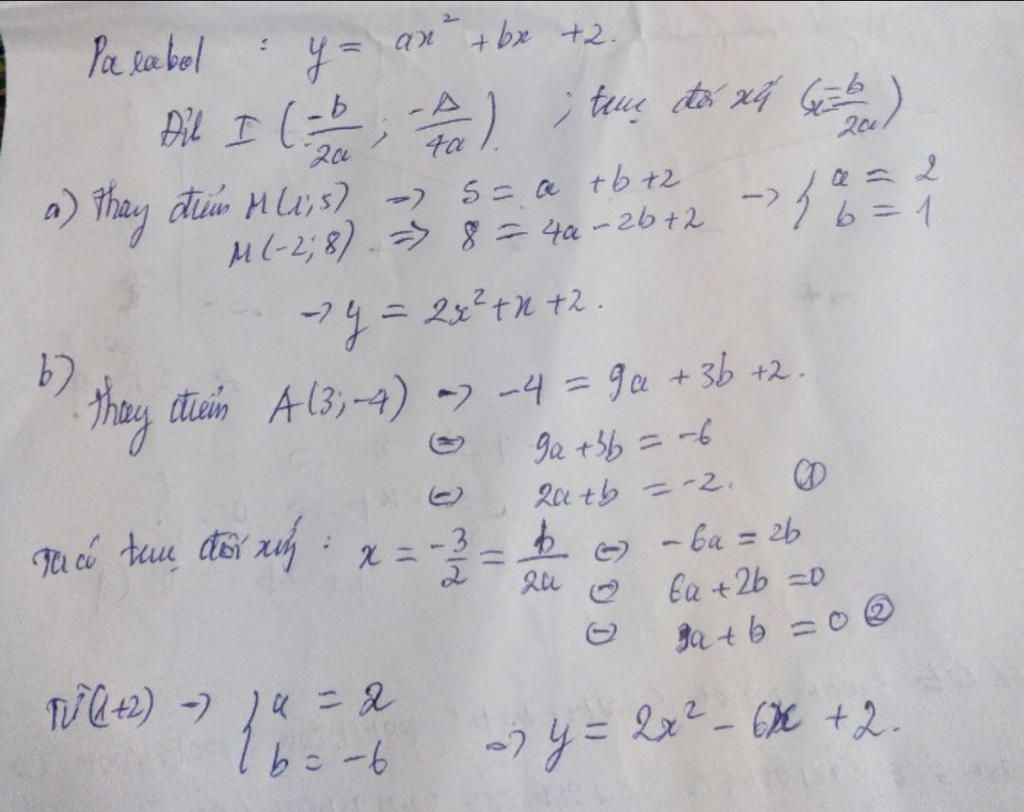 Parabol : y = ax² + bx + 2.
Đỉnh I (-b/2a ; -Δ/4a). ; trục đối xứng (x = -b/2a)
a) Thay điểm M(1;5) → 5 = a + b + 2 → { a = 2
M(-2;8) ⇒ 8 = 4a - 2b + 2 b = 1
→ y = 2x² + x + 2.
b) Thay điểm A(3;-4) → -4 = 9a + 3b + 2.
⇔ 9a + 3b = -6
⇔ 2a + b = -2. ①
Ta có trục đối xứng : x = -3/2 = b/2a ⇔ -6a = 2b
⇔ 6a + 2b = 0
⇔ 3a + b = 0 ②
Từ (1+2) → { a = 2
b = -6 ⇒ y = 2x² - 6x + 2.